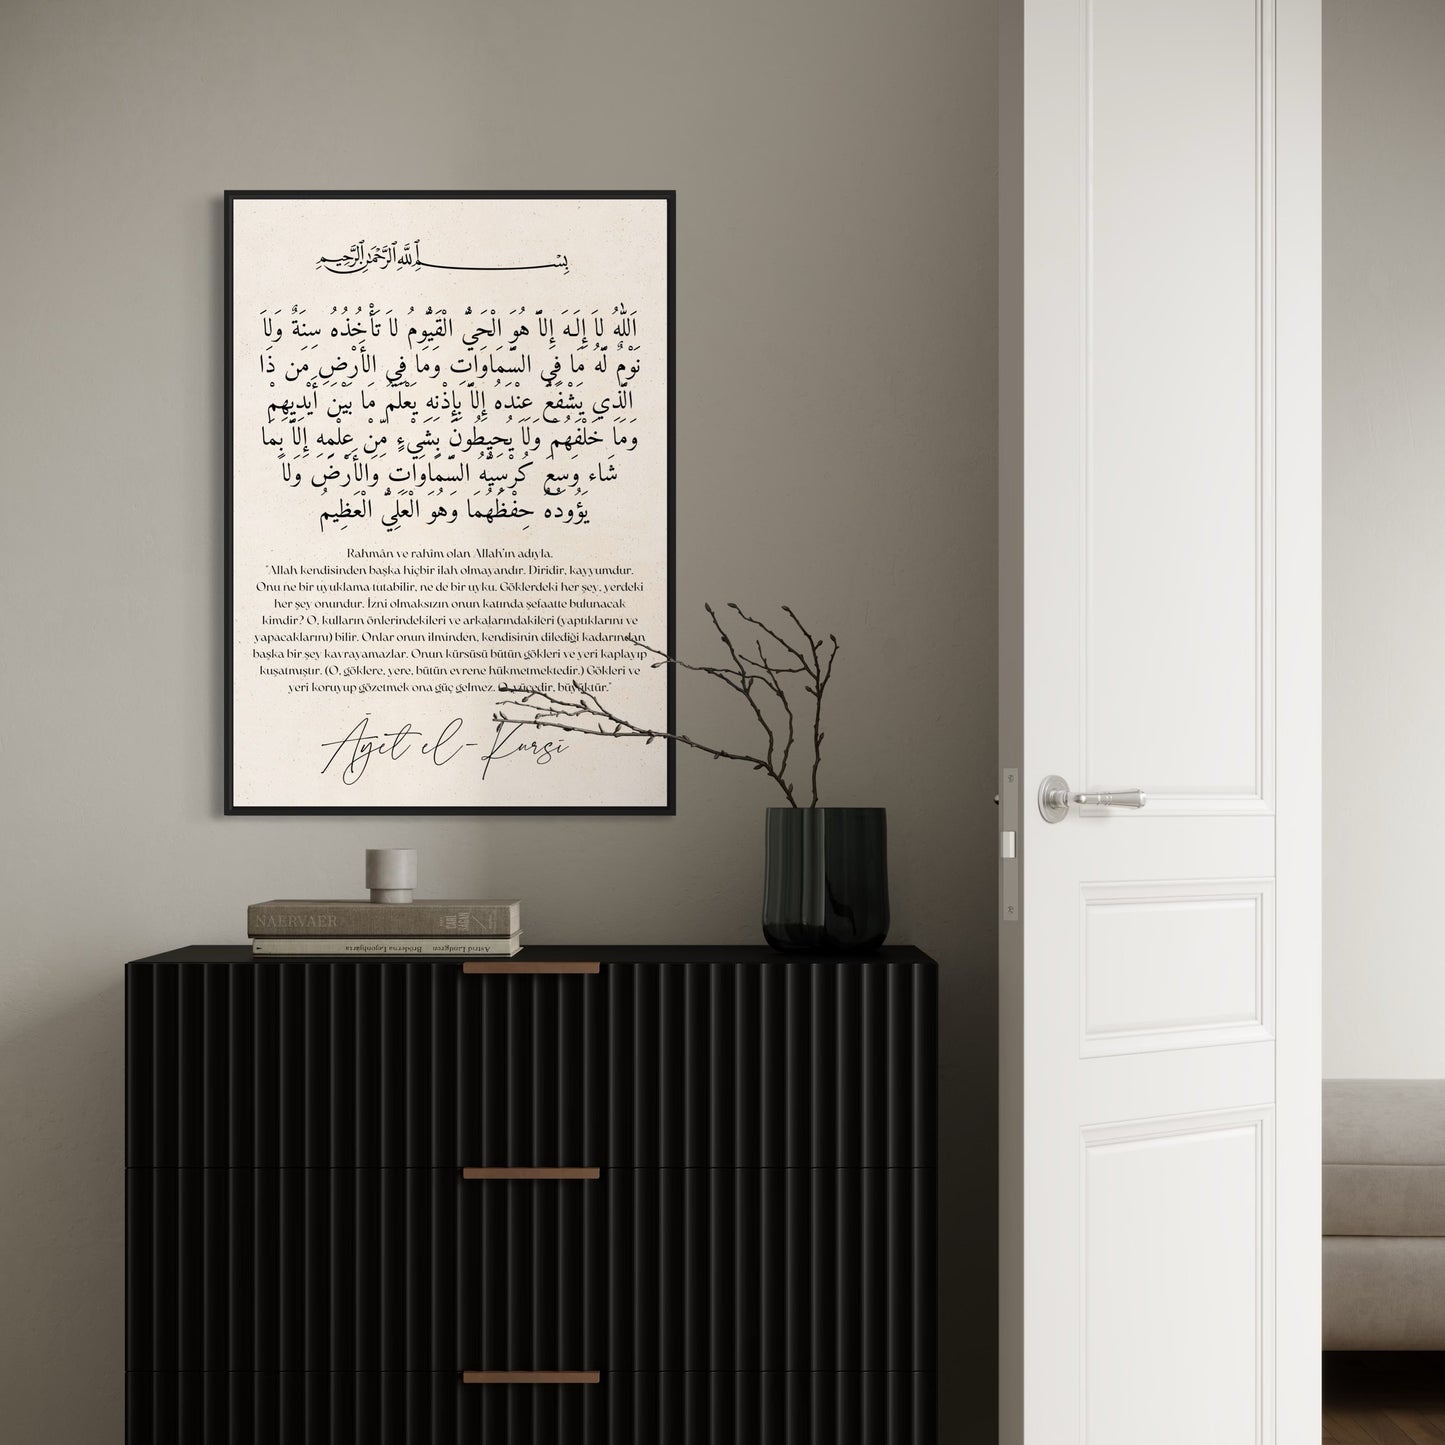 بِسْمِ ٱللَّهِ ٱلرَّحْمَٰنِ ٱلرَّحِيمِ
اَللهُ لاَ إِلَـهَ إِلاَّ هُوَ الْحَيُّ الْقَيُّومُ لاَ تَأْخُذُهُ سِنَةٌ وَلاَ
نَوْمٌ لَّهُ مَا فِي السَّمَاوَاتِ وَمَا فِي الأَرْضِ مَن ذَا
الَّذِي يَشْفَعُ عِنْدَهُ إِلاَّ بِإِذْنِهِ يَعْلَمُ مَا بَيْنَ أَيْدِيهِمْ
وَمَا خَلْفَهُمْ وَلاَ يُحِيطُونَ بِشَيْءٍ مِّنْ عِلْمِهِ إِلاَّ بِمَا
شَاء وَسِعَ كُرْسِيُّهُ السَّمَاوَاتِ وَالأَرْضَ وَلاَ
يَؤُودُهُ حِفْظُهُمَا وَهُوَ الْعَلِيُّ الْعَظِيمُ
Rahmân ve rahîm olan Allah'ın adıyla.
"Allah kendisinden başka hiçbir ilah olmayandır. Diridir, kayyumdur.
Onu ne bir uyuklama tutabilir, ne de bir uyku. Göklerdeki her şey, yerdeki
her şey onundur. İzni olmaksızın onun katında şefaatte bulunacak
kimdir? O, kulların önlerindekileri ve arkalarındakileri (yaptıklarını ve
yapacaklarını) bilir. Onlar onun ilminden, kendisinin dilediği kadarından
başka bir şey kavrayamazlar. Onun kürsüsü bütün gökleri ve yeri kaplayıp
kuşatmıştır. (O, göklere, yere, bütün evrene hükmetmektedir.) Gökleri ve
yeri koruyup gözetmek ona güç gelmez. O, yücedir, büyüktür."
Âyet el-Kursî
NAERVAER
Astrid Lindgren Bröderna Lejonhjärta